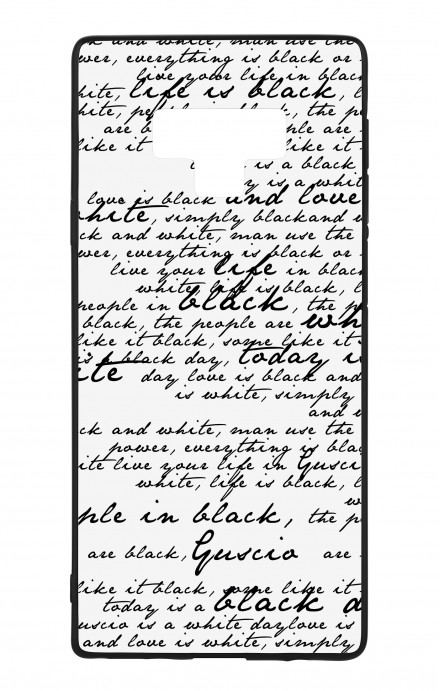 and white, man use the
wer, everything is black or
live your life in blac
hite, life is black, l
hite, black, the p
are b ple are
like it like it
is a black
y is a whit
love is black and love
hite, simply blackand w
ck and white, man use the
wer, everything is black or
live your life in blac
white, life is black, l
people in black, the p
black, the people are wh
like it black, some like it
is a black day, today i
ite day love is black and
is white, simply
and w
ck and white, man use the
power, everything is blac
ite live your life in Gusci
white, life is black, l
w
ple in black, the p
are black, Guscio are
like it black, some like it
today is a black d
uscio is a white daylove is
and love is white, simply